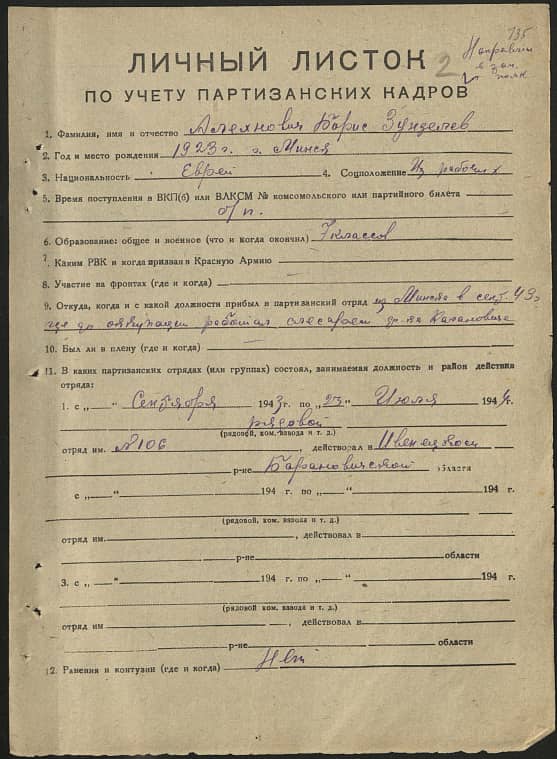 135
2
Направлен
в зап.
полк
ЛИЧНЫЙ ЛИСТОК
ПО УЧЕТУ ПАРТИЗАНСКИХ КАДРОВ
1. Фамилия, имя и отчество Алехнович Борис Зунделев
2. Год и место рождения 1923 г. г. Минск
3. Национальность Еврей 4. Соцположение Из рабочих
5. Время поступления в ВКП(б) или ВЛКСМ № комсомольского или партийного билета
б/п.
6. Образование: общее и военное (что и когда окончил) 7 классов
7. Каким РВК и когда призван в Красную Армию
8. Участие на фронтах (где и когда)
9. Откуда, когда и с какой должности прибыл в партизанский отряд из Минска в сент. 43 г
где до оккупации работал слесарем Кагановича
10. Был ли в плену (где и когда)
11. В каких партизанских отрядах (или группах) состоял, занимаемая должность и район действия
отряда:
1. с „ “ Сентября 1943 г. по „23“ Июля 1944 г.
рядовой
(рядовой, ком. взвода и т. д.)
отряд им. №106, действовал в Ивенецком
р-не Барановичской области
с „ “ 194 г. по „ “ 194 г.
(рядовой, ком. взвода и т. д.)
отряд им. , действовал в
р-не области
3. с „ “ 194 г. по „ “ 194 г.
(рядовой, ком. взвода и т. д.)
отряд им , действовал в
р-не области
12. Ранения и контузии (где и когда) Нет